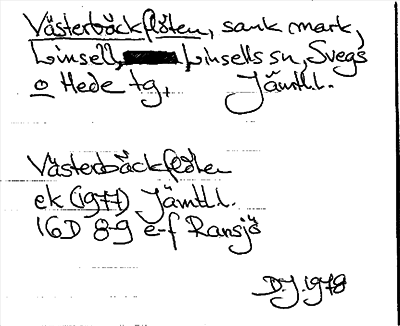 Västerbäckflöten, sank mark,
Linsell, Linsells sn, Svegs
o Hede tg, Jämtl.l.
Västerbäckflöten
ek (1977) Jämtl.l.
16D 8-9 e-f Ransjö
D.J. 1978